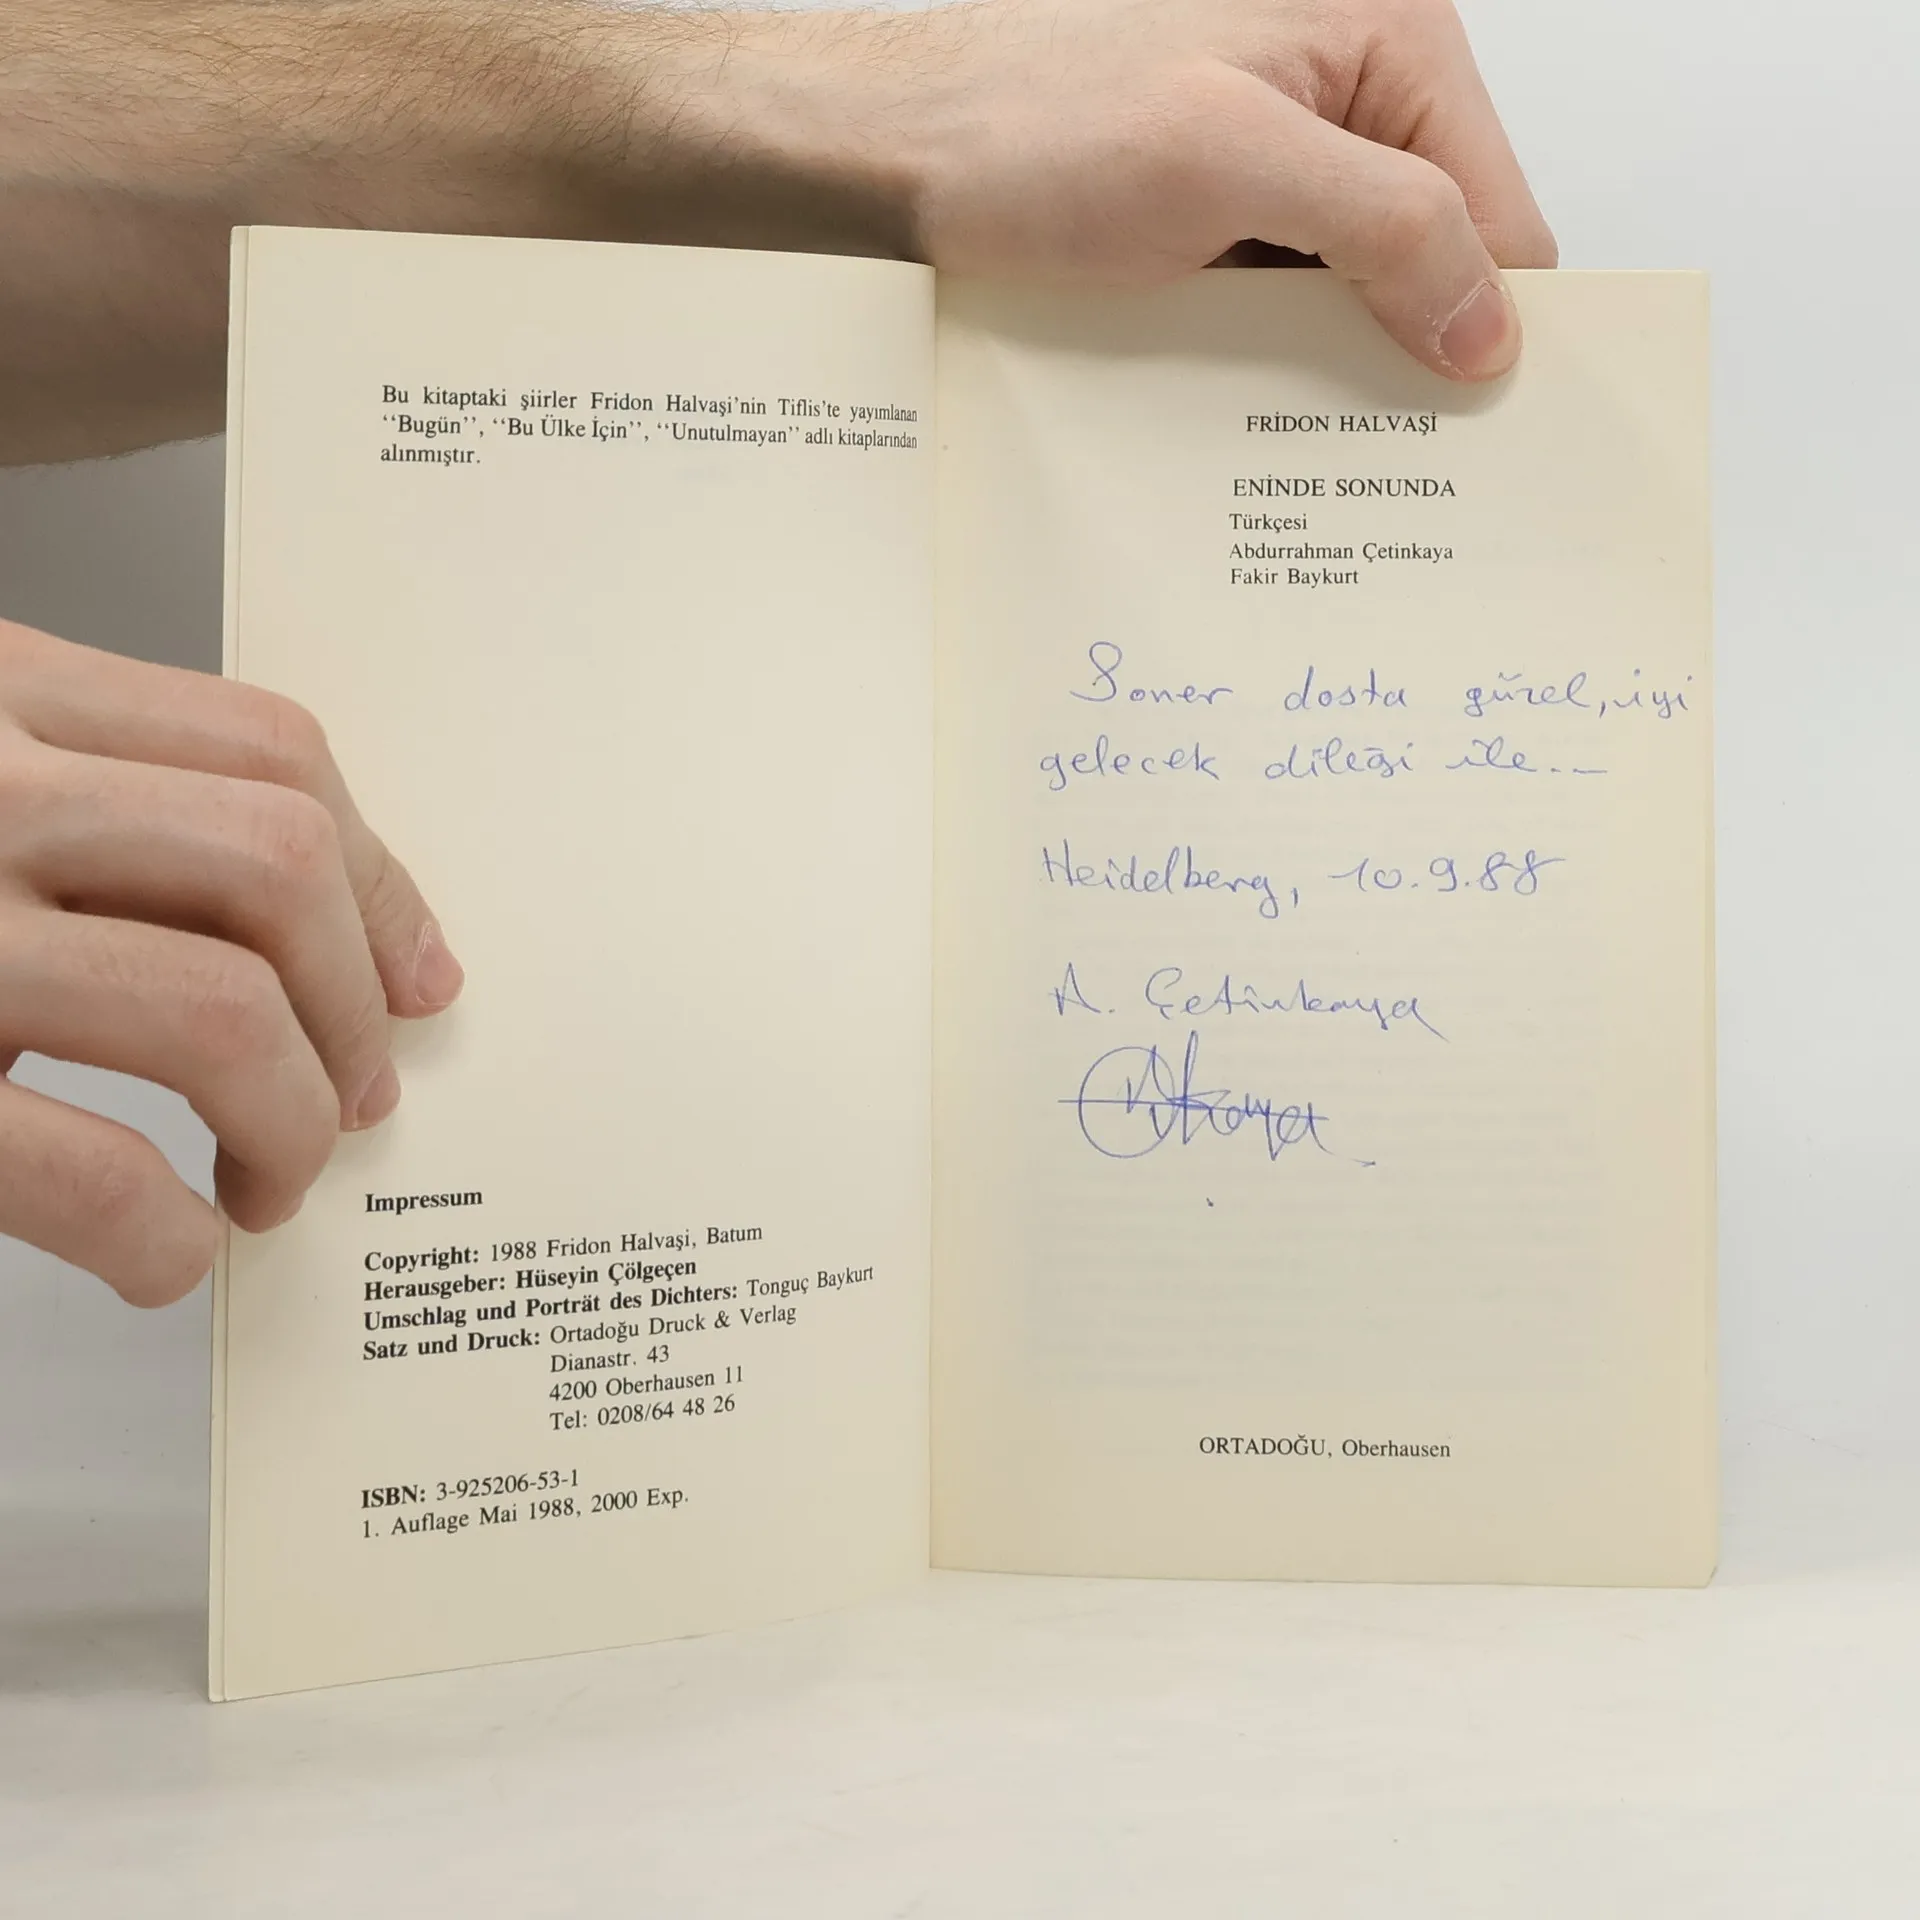 Bu kitaptaki şiirler Fridon Halvaşi’nin Tiflis’te yayımlanan
‘‘Bugün’’, ‘‘Bu Ülke İçin’’, ‘‘Unutulmayan’’ adlı kitaplarından
alınmıştır.
Impressum
Copyright: 1988 Fridon Halvaşi, Batum
Herausgeber: Hüseyin Çölgeçen
Umschlag und Porträt des Dichters: Tonguç Baykurt
Satz und Druck: Ortadoğu Druck & Verlag
Dianastr. 43
4200 Oberhausen 11
Tel: 0208/64 48 26
ISBN: 3-925206-53-1
1. Auflage Mai 1988, 2000 Exp.
FRİDON HALVAŞİ
ENİNDE SONUNDA
Türkçesi
Abdurrahman Çetinkaya
Fakir Baykurt
Soner dosta güzel, iyi
gelecek dileği ile...
Heidelberg, 10.9.88
A. Çetinkaya
ORTADOĞU, Oberhausen